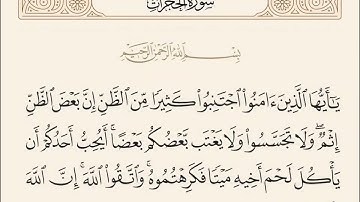 سورة الحجرات
بِسْمِ اللَّهِ الرَّحْمَٰنِ الرَّحِيمِ
يَٰٓأَيُّهَا الَّذِينَ ءَامَنُوا۟ اجْتَنِبُوا۟ كَثِيرًا مِّنَ الظَّنِّ إِنَّ بَعْضَ الظَّنِّ
إِثْمٌ ۖ وَلَا تَجَسَّسُوا۟ وَلَا يَغْتَب بَّعْضُكُم بَعْضًا ۚ أَيُحِبُّ أَحَدُكُمْ أَن
يَأْكُلَ لَحْمَ أَخِيهِ مَيْتًا فَكَرِهْتُمُوهُ ۚ وَاتَّقُوا۟ اللَّهَ ۚ إِنَّ اللَّهَ